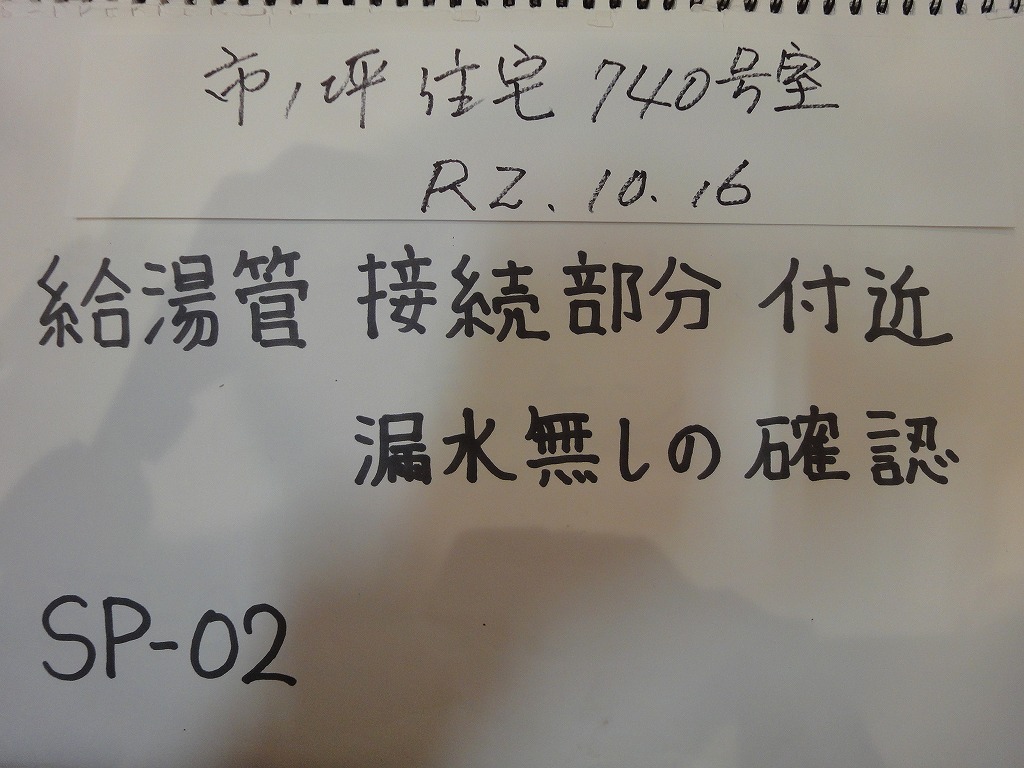 市ノ坪住宅 740号室
R2.10.16
給湯管 接続部分 付近
漏水無しの確認
SP-02